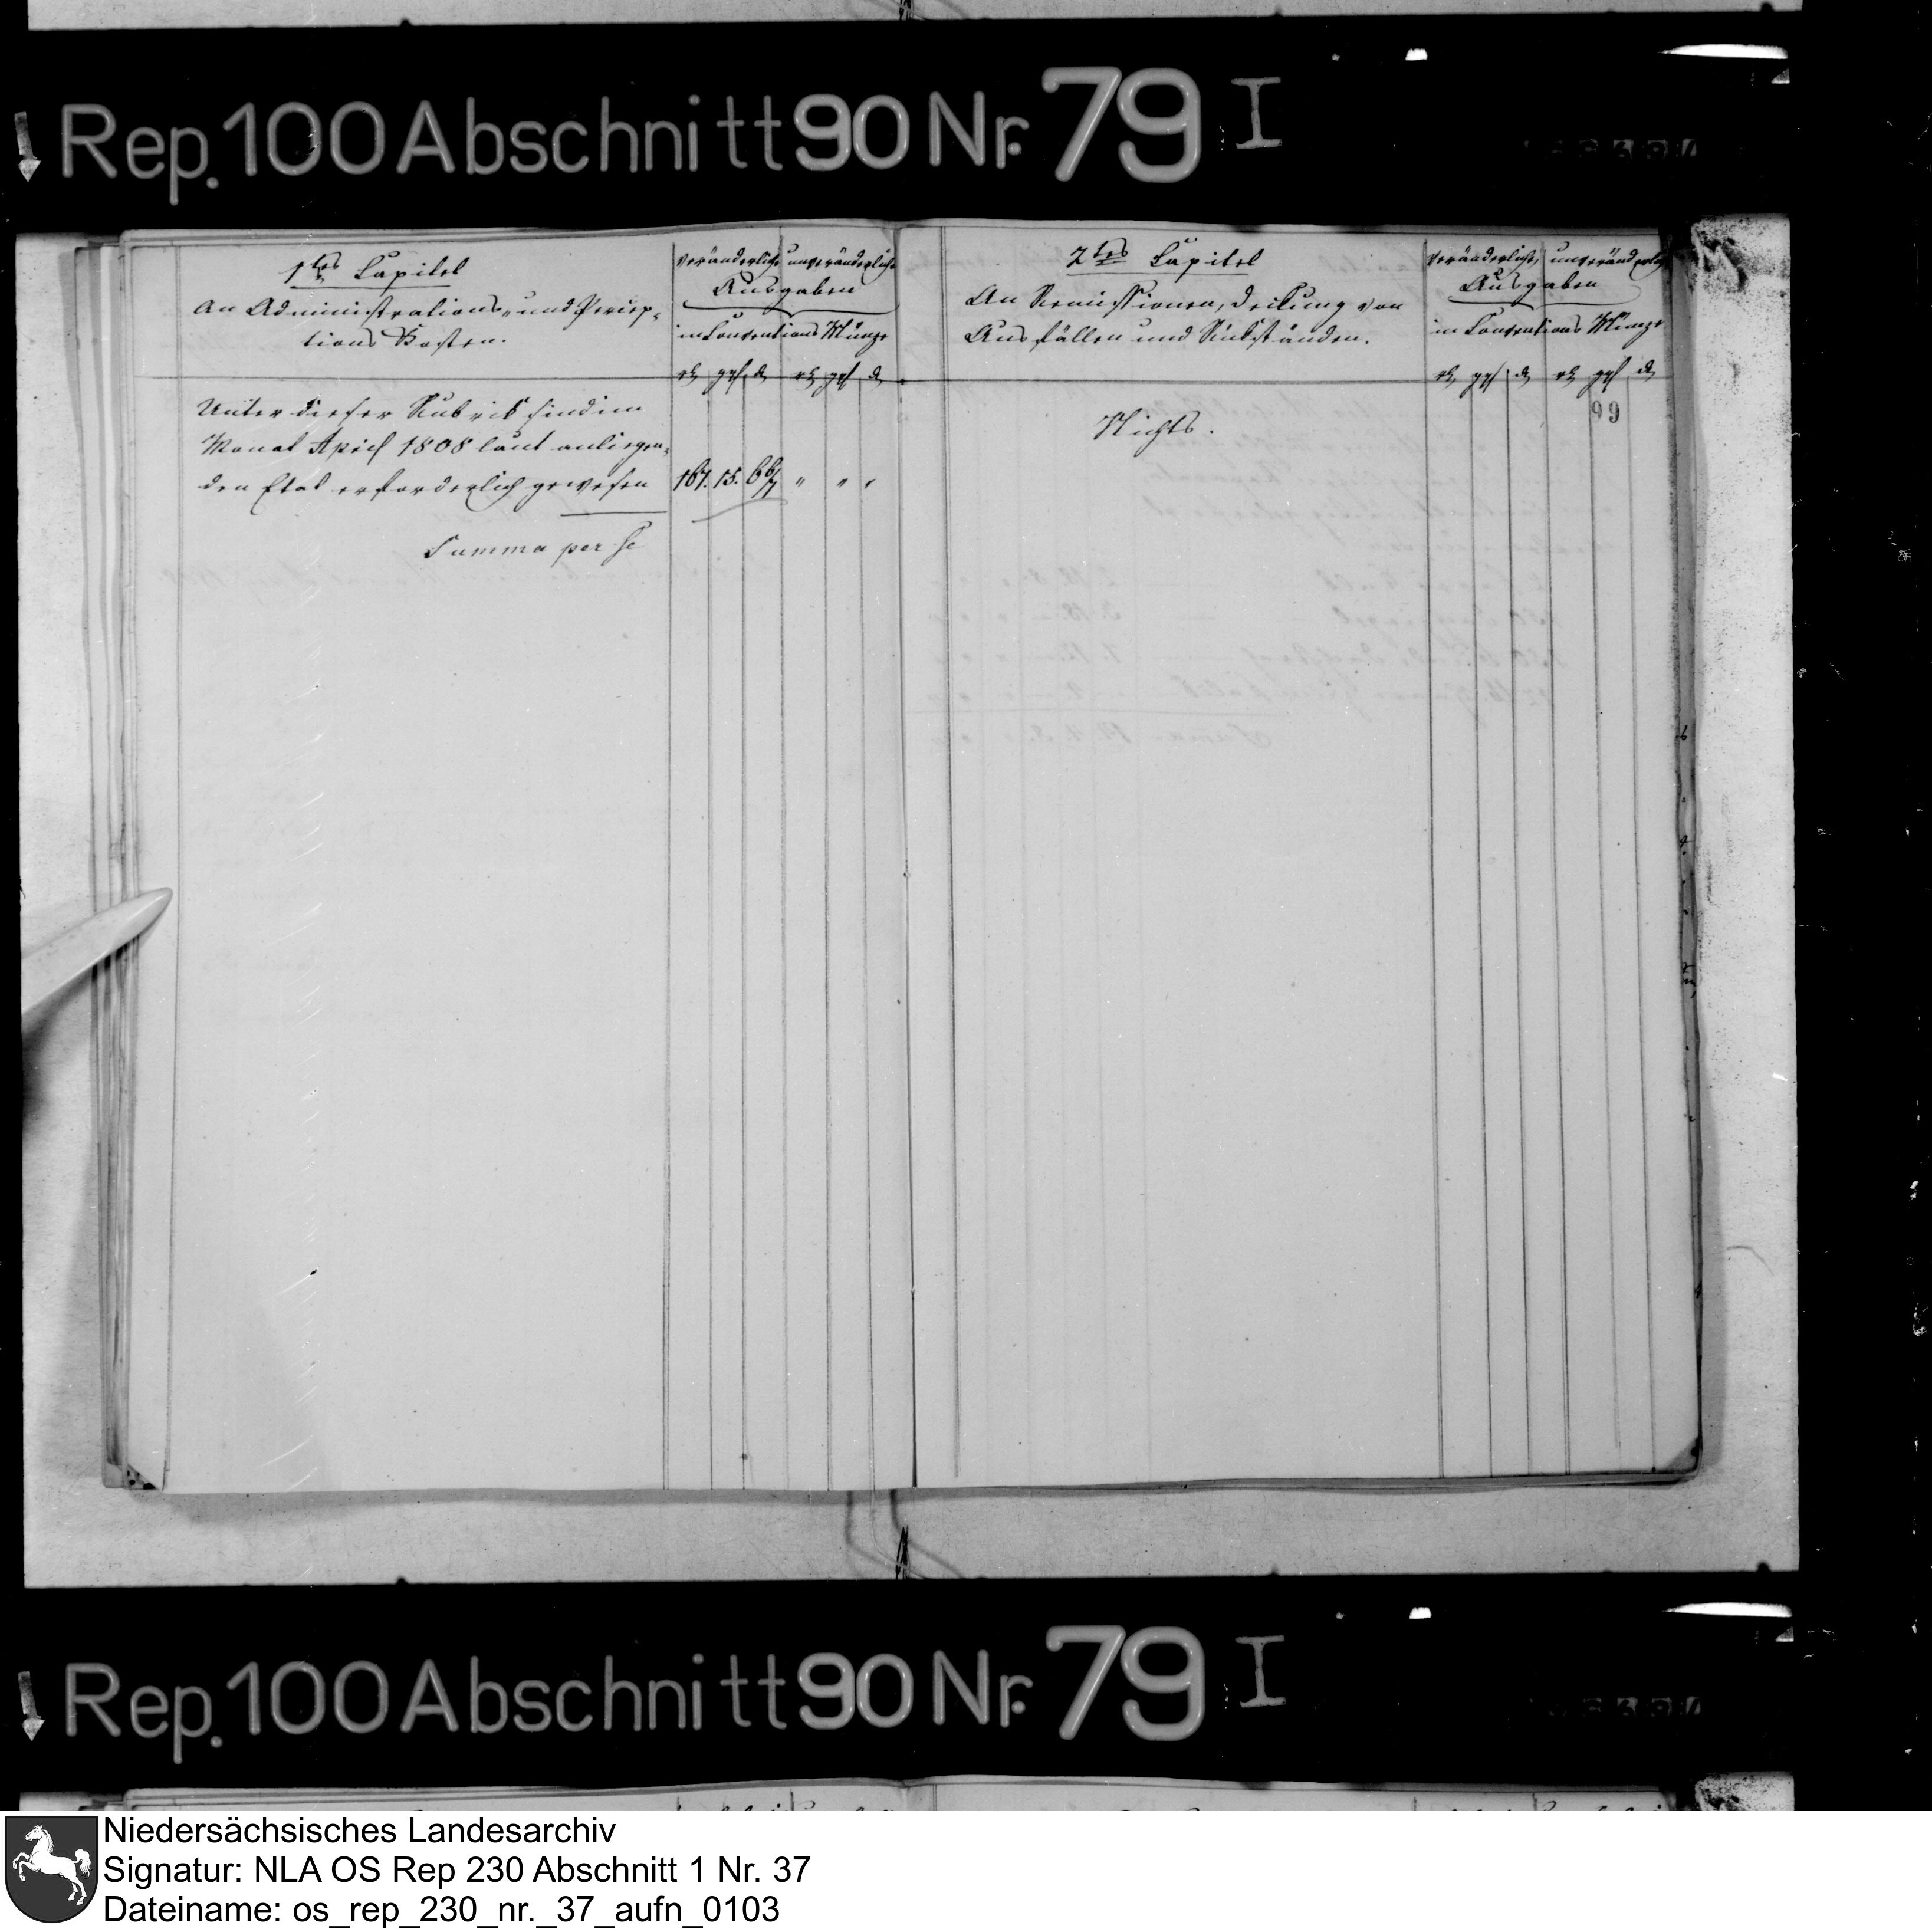 Rep. 100 Abschnitt 90 Nr. 79 I
1tes Capitel
An Administrations- und Percep-
tions Kosten.
veränderliche unveränderliche
Ausgaben
in Conventions Münze
rℓ ggl ₰ rℓ ggl ₰
Unter dieser Rubrik sind im
Monat April 1808 laut anliegen-
den Etat erforderlich gewesen 167. 15. 6 6/7 " " "
Summa per se
2tes Capitel
An Remissionen, Deckung von
Ausfällen und Rückständen.
veränderliche, unveränderliche
Ausgaben
in Conventions Münze
rℓ ggl ₰ rℓ ggl ₰
99
Nichts.
Rep. 100 Abschnitt 90 Nr. 79 I
Niedersächsisches Landesarchiv
Signatur: NLA OS Rep 230 Abschnitt 1 Nr. 37
Dateiname: os_rep_230_nr._37_aufn_0103